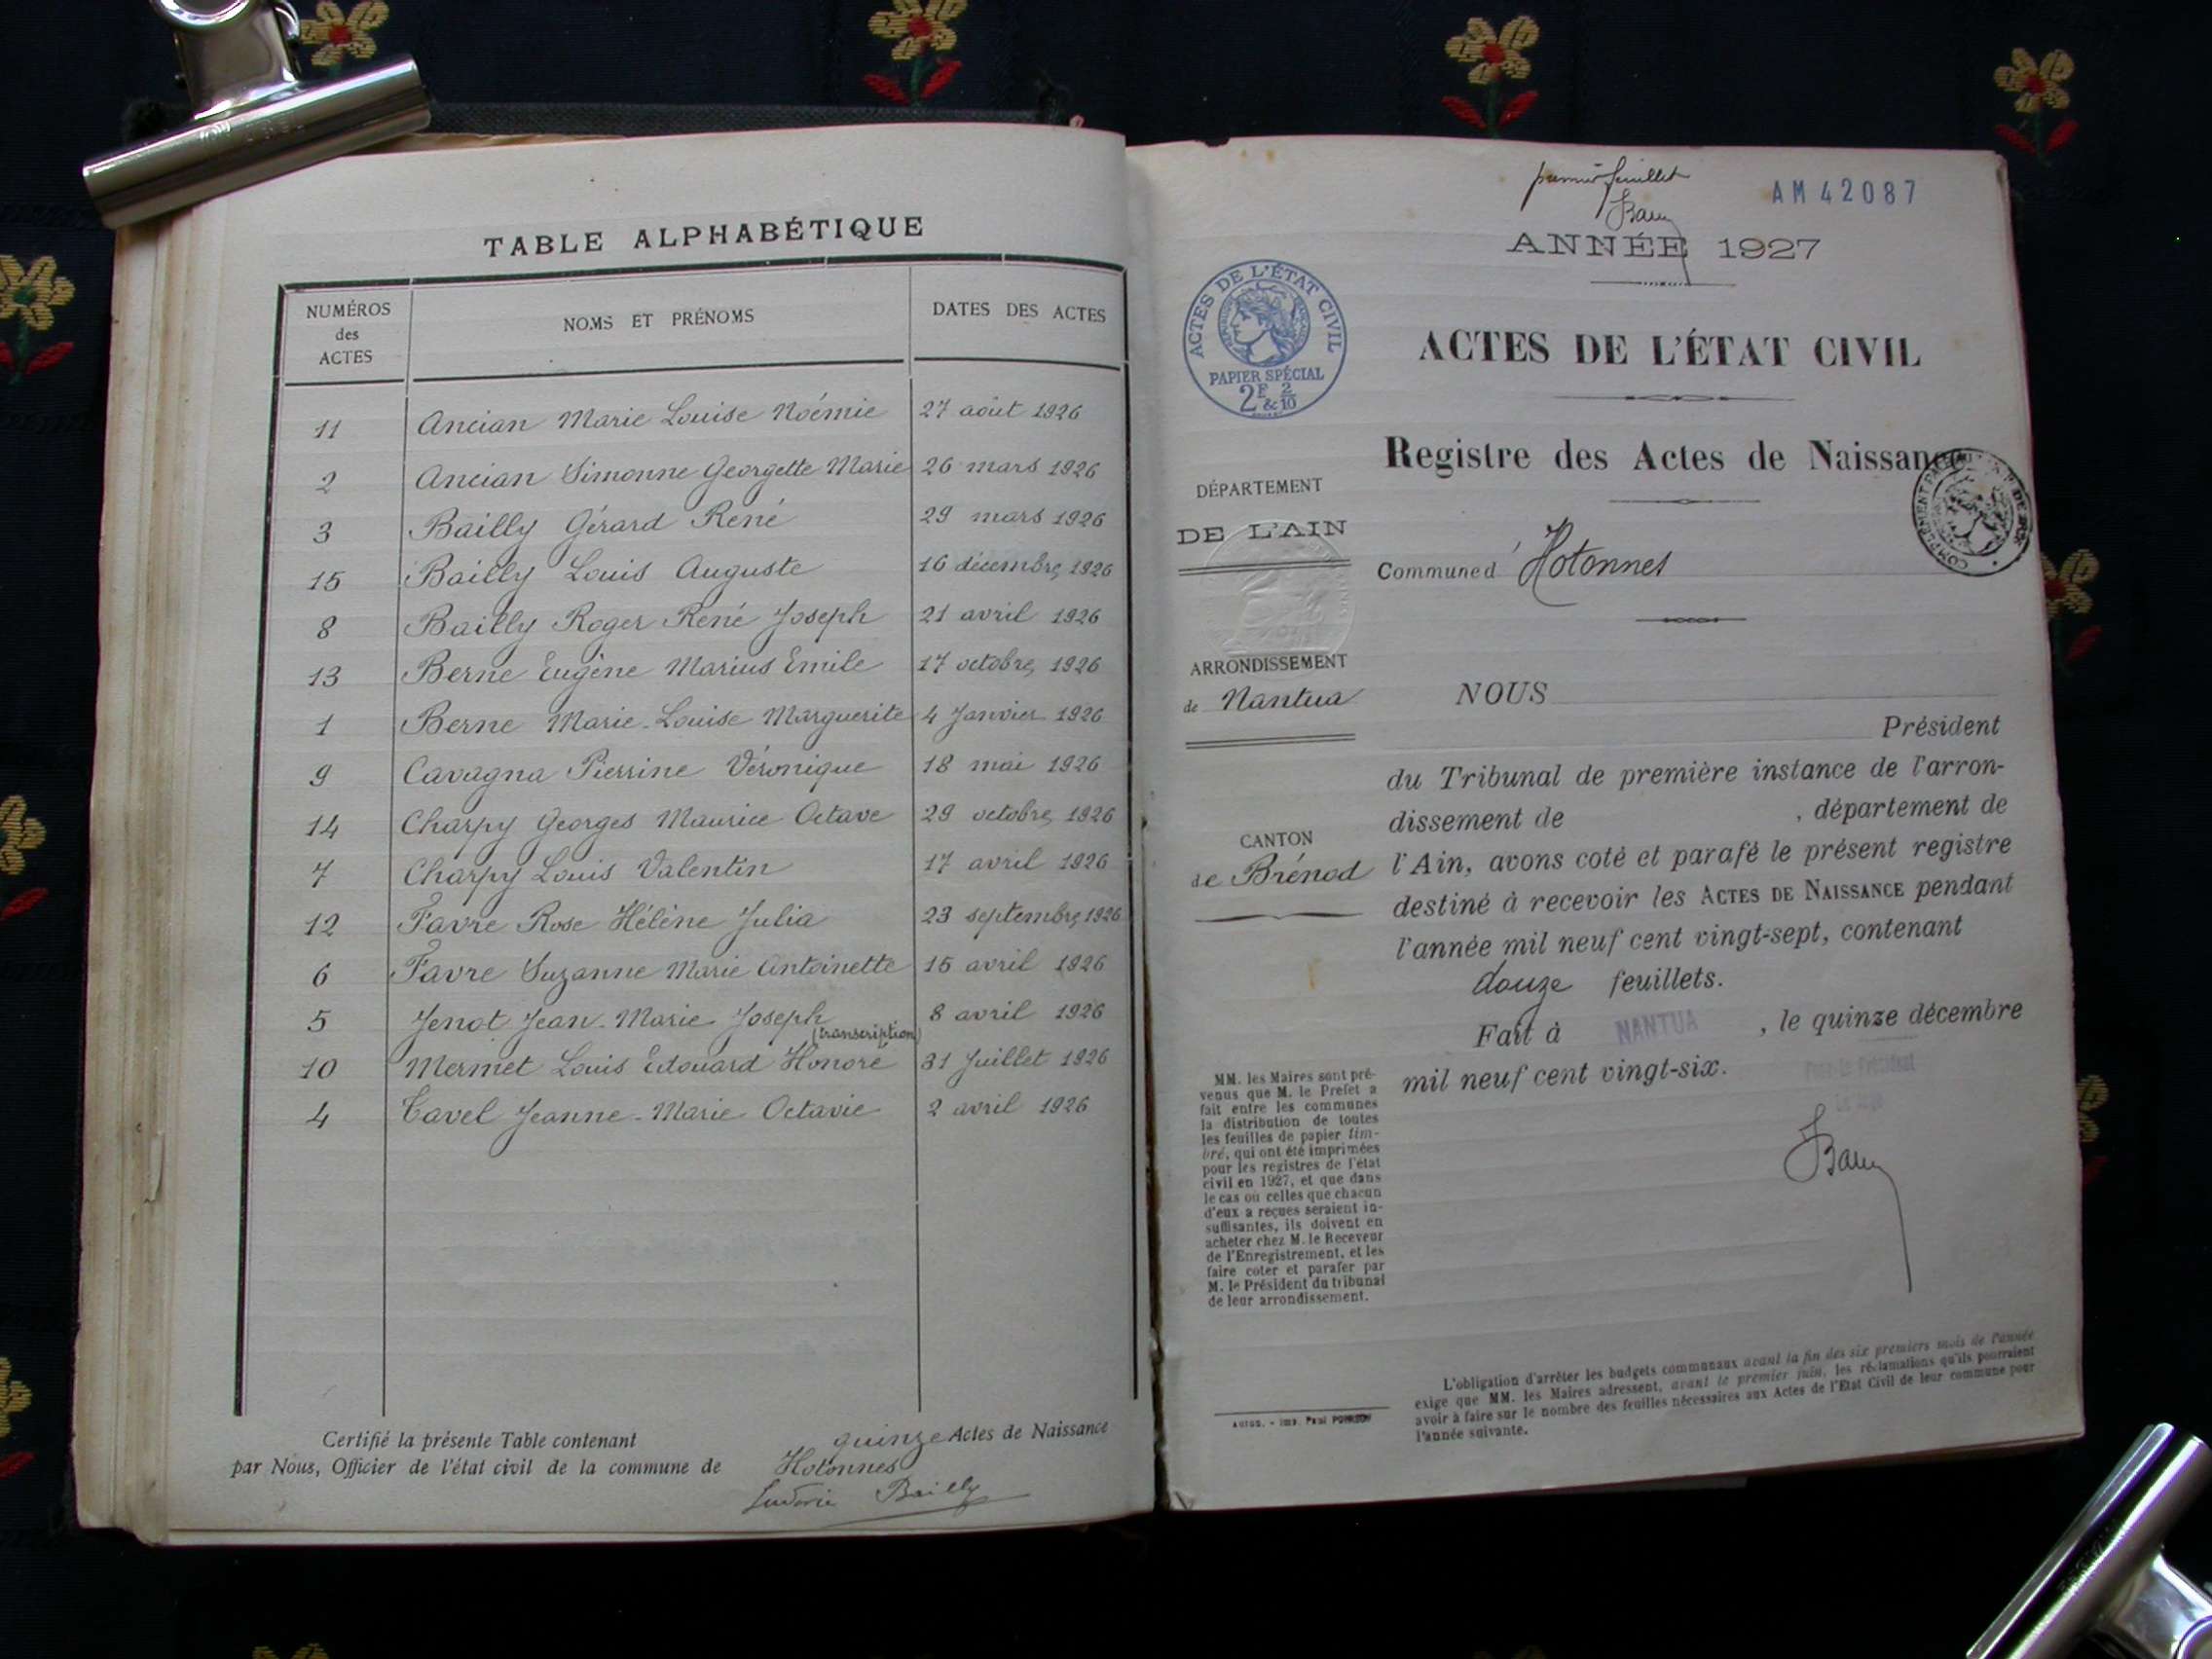 TABLE ALPHABÉTIQUE
NUMÉROS des ACTES NOMS ET PRÉNOMS DATES DES ACTES
11 Ancian Marie Louise Noémie 27 août 1926
2 Ancian Simonne Georgette Marie 26 mars 1926
3 Bailly Gérard René 29 mars 1926
15 Bailly Louis Auguste 16 décembre 1926
8 Bailly Roger René Joseph 21 avril 1926
13 Berne Eugène Marius Emile 17 octobre 1926
1 Berne Marie-Louise Marguerite 4 Janvier 1926
9 Cavagna Pierrine Véronique 18 mai 1926
14 Charpy Georges Maurice Octave 29 octobre 1926
7 Charpy Louis Valentin 17 avril 1926
12 Favre Rose Hélène Julia 23 septembre 1926
6 Favre Suzanne Marie Antoinette 15 avril 1926
5 Jenot Jean-Marie Joseph 8 avril 1926
(transcription)
10 Mermet Louis Edouard Honoré 31 Juillet 1926
4 Tavel Jeanne-Marie Octavie 2 avril 1926
Certifié la présente Table contenant quinze Actes de Naissance
par Nous, Officier de l'état civil de la commune de Hotonnes
Bailly
premier feuillet
AM 42087
ANNÉE 1927
ACTES DE L'ÉTAT CIVIL
PAPIER SPÉCIAL
2F & 2/10
ACTES DE L'ÉTAT CIVIL
Registre des Actes de Naissance
DÉPARTEMENT
DE L'AIN
Commune d'Hotonnes
ARRONDISSEMENT
de Nantua
CANTON
de Brénod
NOUS
Président
du Tribunal de première instance de l'arron-
dissement de , département de
l'Ain, avons coté et parafé le présent registre
destiné à recevoir les ACTES DE NAISSANCE pendant
l'année mil neuf cent vingt-sept, contenant
douze feuillets.
Fait à NANTUA , le quinze décembre
mil neuf cent vingt-six.
Pour le Président
MM. les Maires sont pré-
venus que M. le Préfet a
fait entre les communes
la distribution de toutes
les feuilles de papier tim-
bré, qui ont été imprimées
pour les registres de l'état
civil en 1927, et que dans
le cas où celles que chacun
d'eux a reçues seraient in-
suffisantes, ils doivent en
acheter chez M. le Receveur
de l'Enregistrement, et les
faire coter et parafer par
M. le Président du tribunal
de leur arrondissement.
L'obligation d'arrêter les budgets communaux avant la fin des six premiers mois de l'année
exige que MM. les Maires adressent, avant le premier juin, les réclamations qu'ils pourraient
avoir à faire sur le nombre des feuilles nécessaires aux Actes de l'Etat Civil de leur commune pour
l'année suivante.